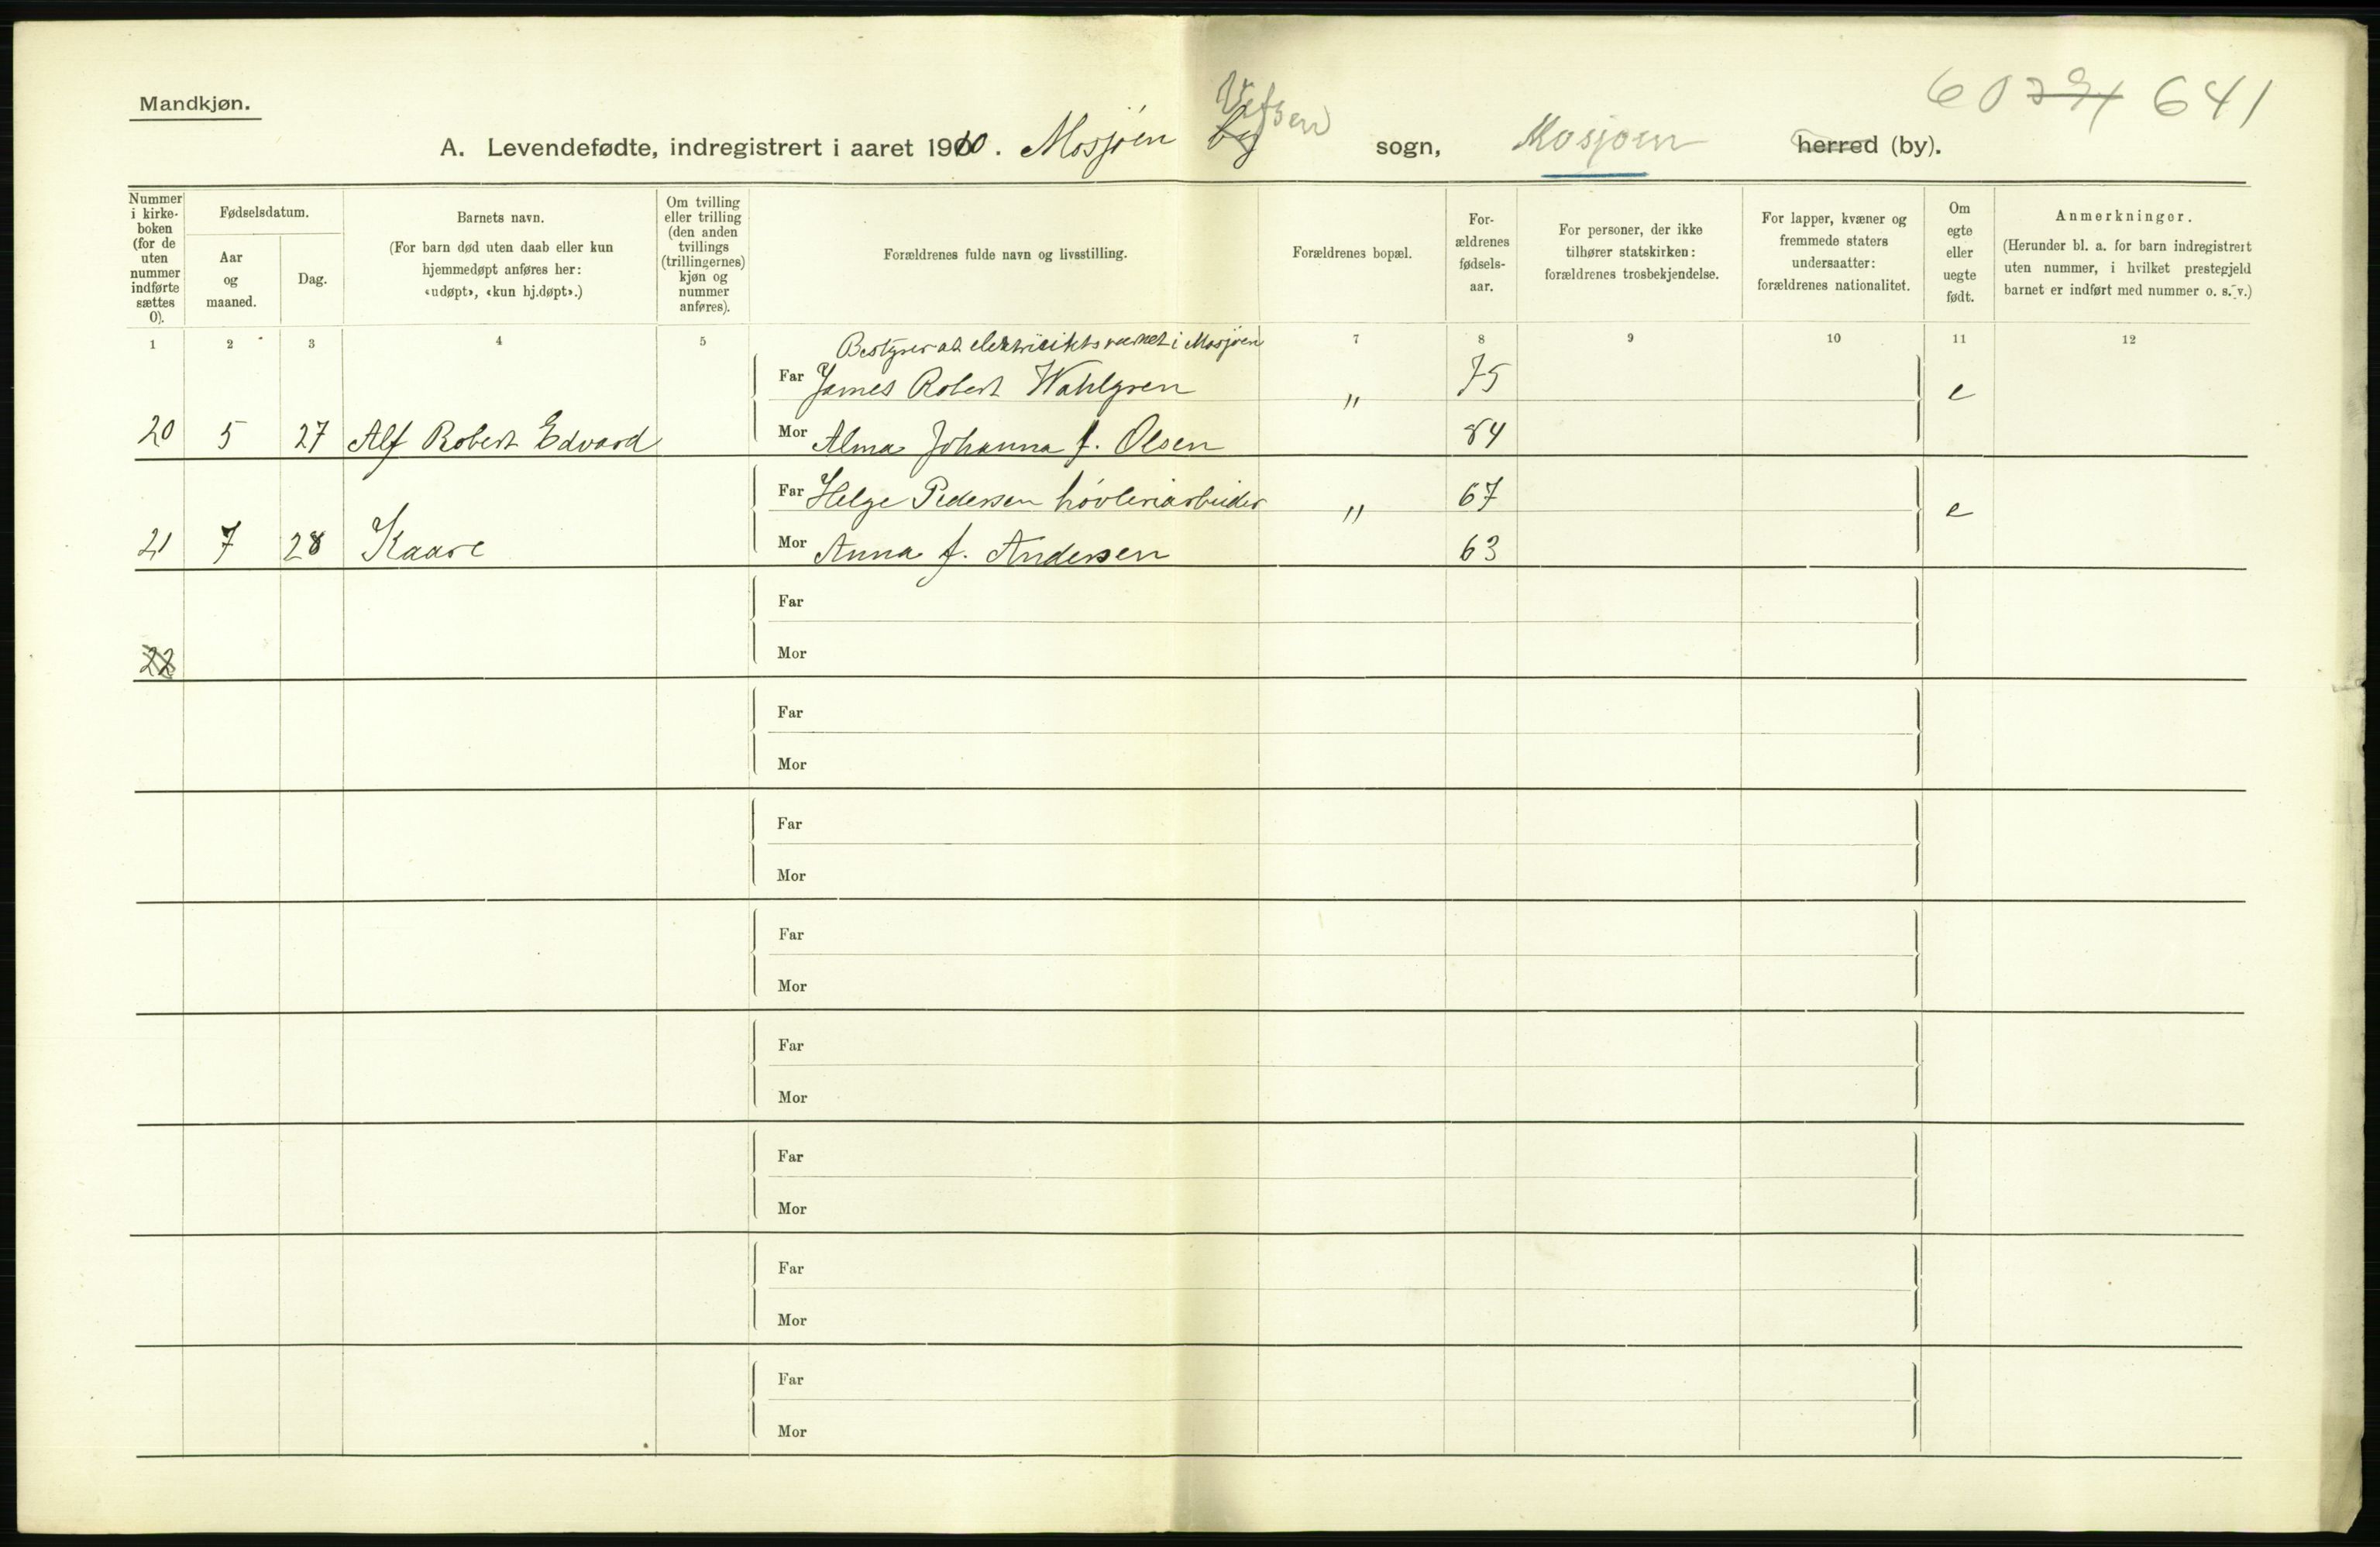 Mandkjøn.
60 641
A. Levendefødte, indregistrert i aaret 1910. Mosjøen by Vefsen sogn, Mosjøen herred (by).
Nummer i kirke-boken (for de uten nummer indførte sættes 0).
Fødselsdatum.
Aar og maaned.
Dag.
Barnets navn.
(For barn død uten daab eller kun hjemmedøpt anføres her: «udøpt», «kun hj.døpt».)
Om tvilling eller trilling (den anden tvillings (trillingernes) kjøn og nummer anføres).
Forældrenes fulde navn og livsstilling.
Forældrenes bopæl.
For-ældrenes fødsels-aar.
For personer, der ikke tilhører statskirken: forældrenes trosbekjendelse.
For lapper, kvæner og fremmede staters undersaatter: forældrenes nationalitet.
Om egte eller uegte født.
Anmerkninger.
(Herunder bl. a. for barn indregistrert uten nummer, i hvilket prestegjeld barnet er indført med nummer o. s. v.)
1 2 3 4 5 7 8 9 10 11 12
Bestyrer at elektricitetsværket i Mosjøen
Far James Robert Wahlgren " 75 e
20 5 27 Alf Robert Edvard Mor Alma Johanna f. Olsen 84
Far Helge Pedersen høvleriarbeider " 67 e
21 7 28 Kaare Mor Anna f. Andersen 63
Far
22 Mor
Far
Mor
Far
Mor
Far
Mor
Far
Mor
Far
Mor
Far
Mor
Far
Mor